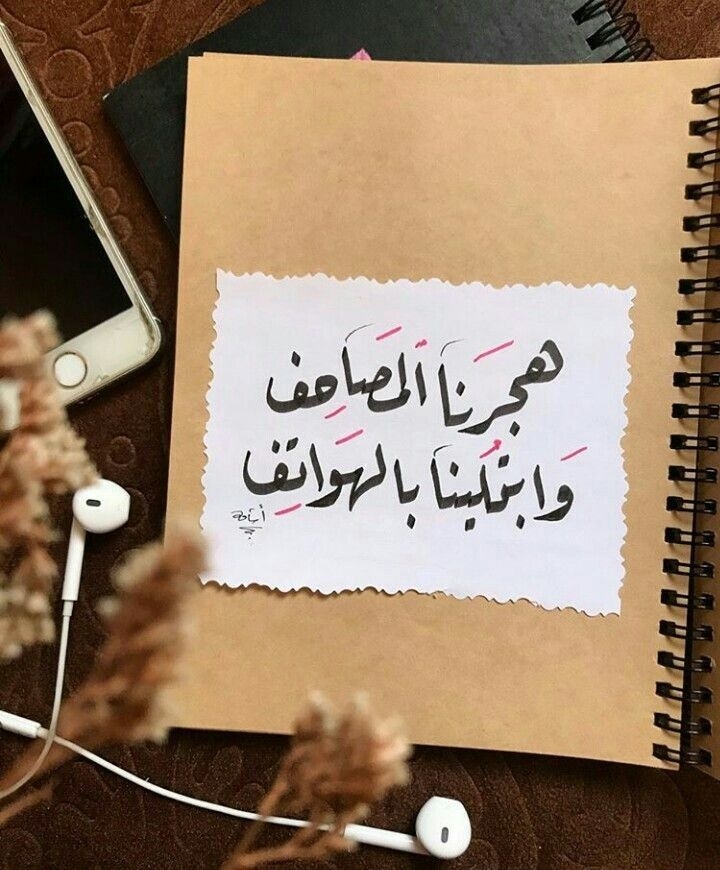 هَجَرنَا ٱلمَصَاحِف
وَابتُلينَا بالهَوَاتِف